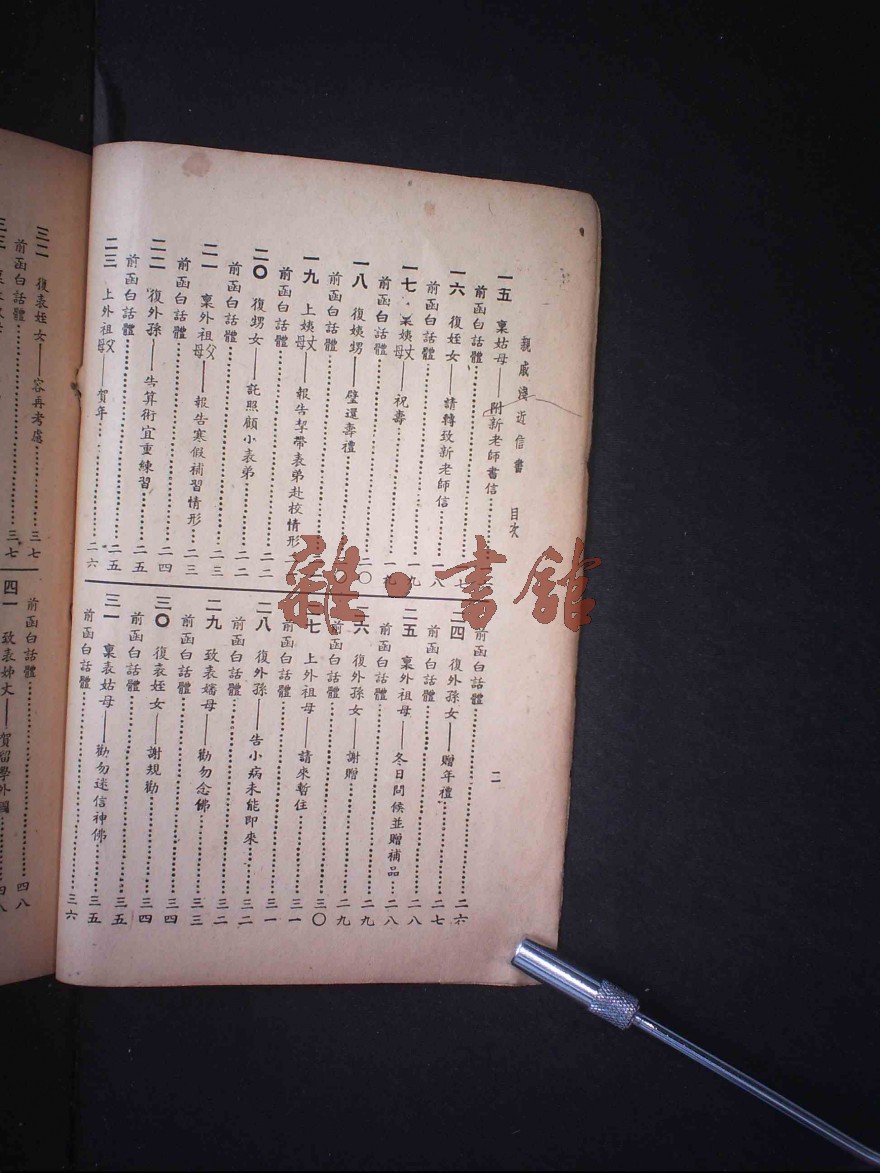 親戚淺近信書 目次
二
一五 稟姑母——附新老師書信
前函白話體
一六 復姪女——請轉致新老師信 一八
前函白話體 一九
一七 姨丈母——祝壽 一九
前函白話體
一八 復姨甥——璧還壽禮 二〇
前函白話體
一九 上姨丈母——報告挈帶表弟赴校情形
前函白話體 二二
二〇 復甥女——託照顧小表弟 二二
前函白話體 二三
二一 稟外祖父母——報告寒假補習情形 二三
前函白話體 二四
二二 復外孫——告算術宜重練習 二五
前函白話體 二五
二三 上外祖父母——賀年 二六
前函白話體 二六
二四 復外孫女——贈年禮 二七
前函白話體 二八
二五 稟外祖母——冬日問候並贈補品 二八
前函白話體 二九
二六 復外孫女——謝贈 二九
前函白話體 三〇
二七 上外祖母——請來暫住 三一
前函白話體 三一
二八 復外孫——告小病未能即來 三二
前函白話體 三二
二九 致表嬸母——勸勿念佛 三三
前函白話體 三四
三〇 復表姪女——謝規勸 三四
前函白話體 三五
三一 稟表姑母——勸勿迷信神佛 三五
前函白話體 三六
三二 復表姪女——容再考慮 三七
前函白話體 三七
三三
前函白話體 四八
四一 致表姊丈——賀留學外國 四八
雜·書館